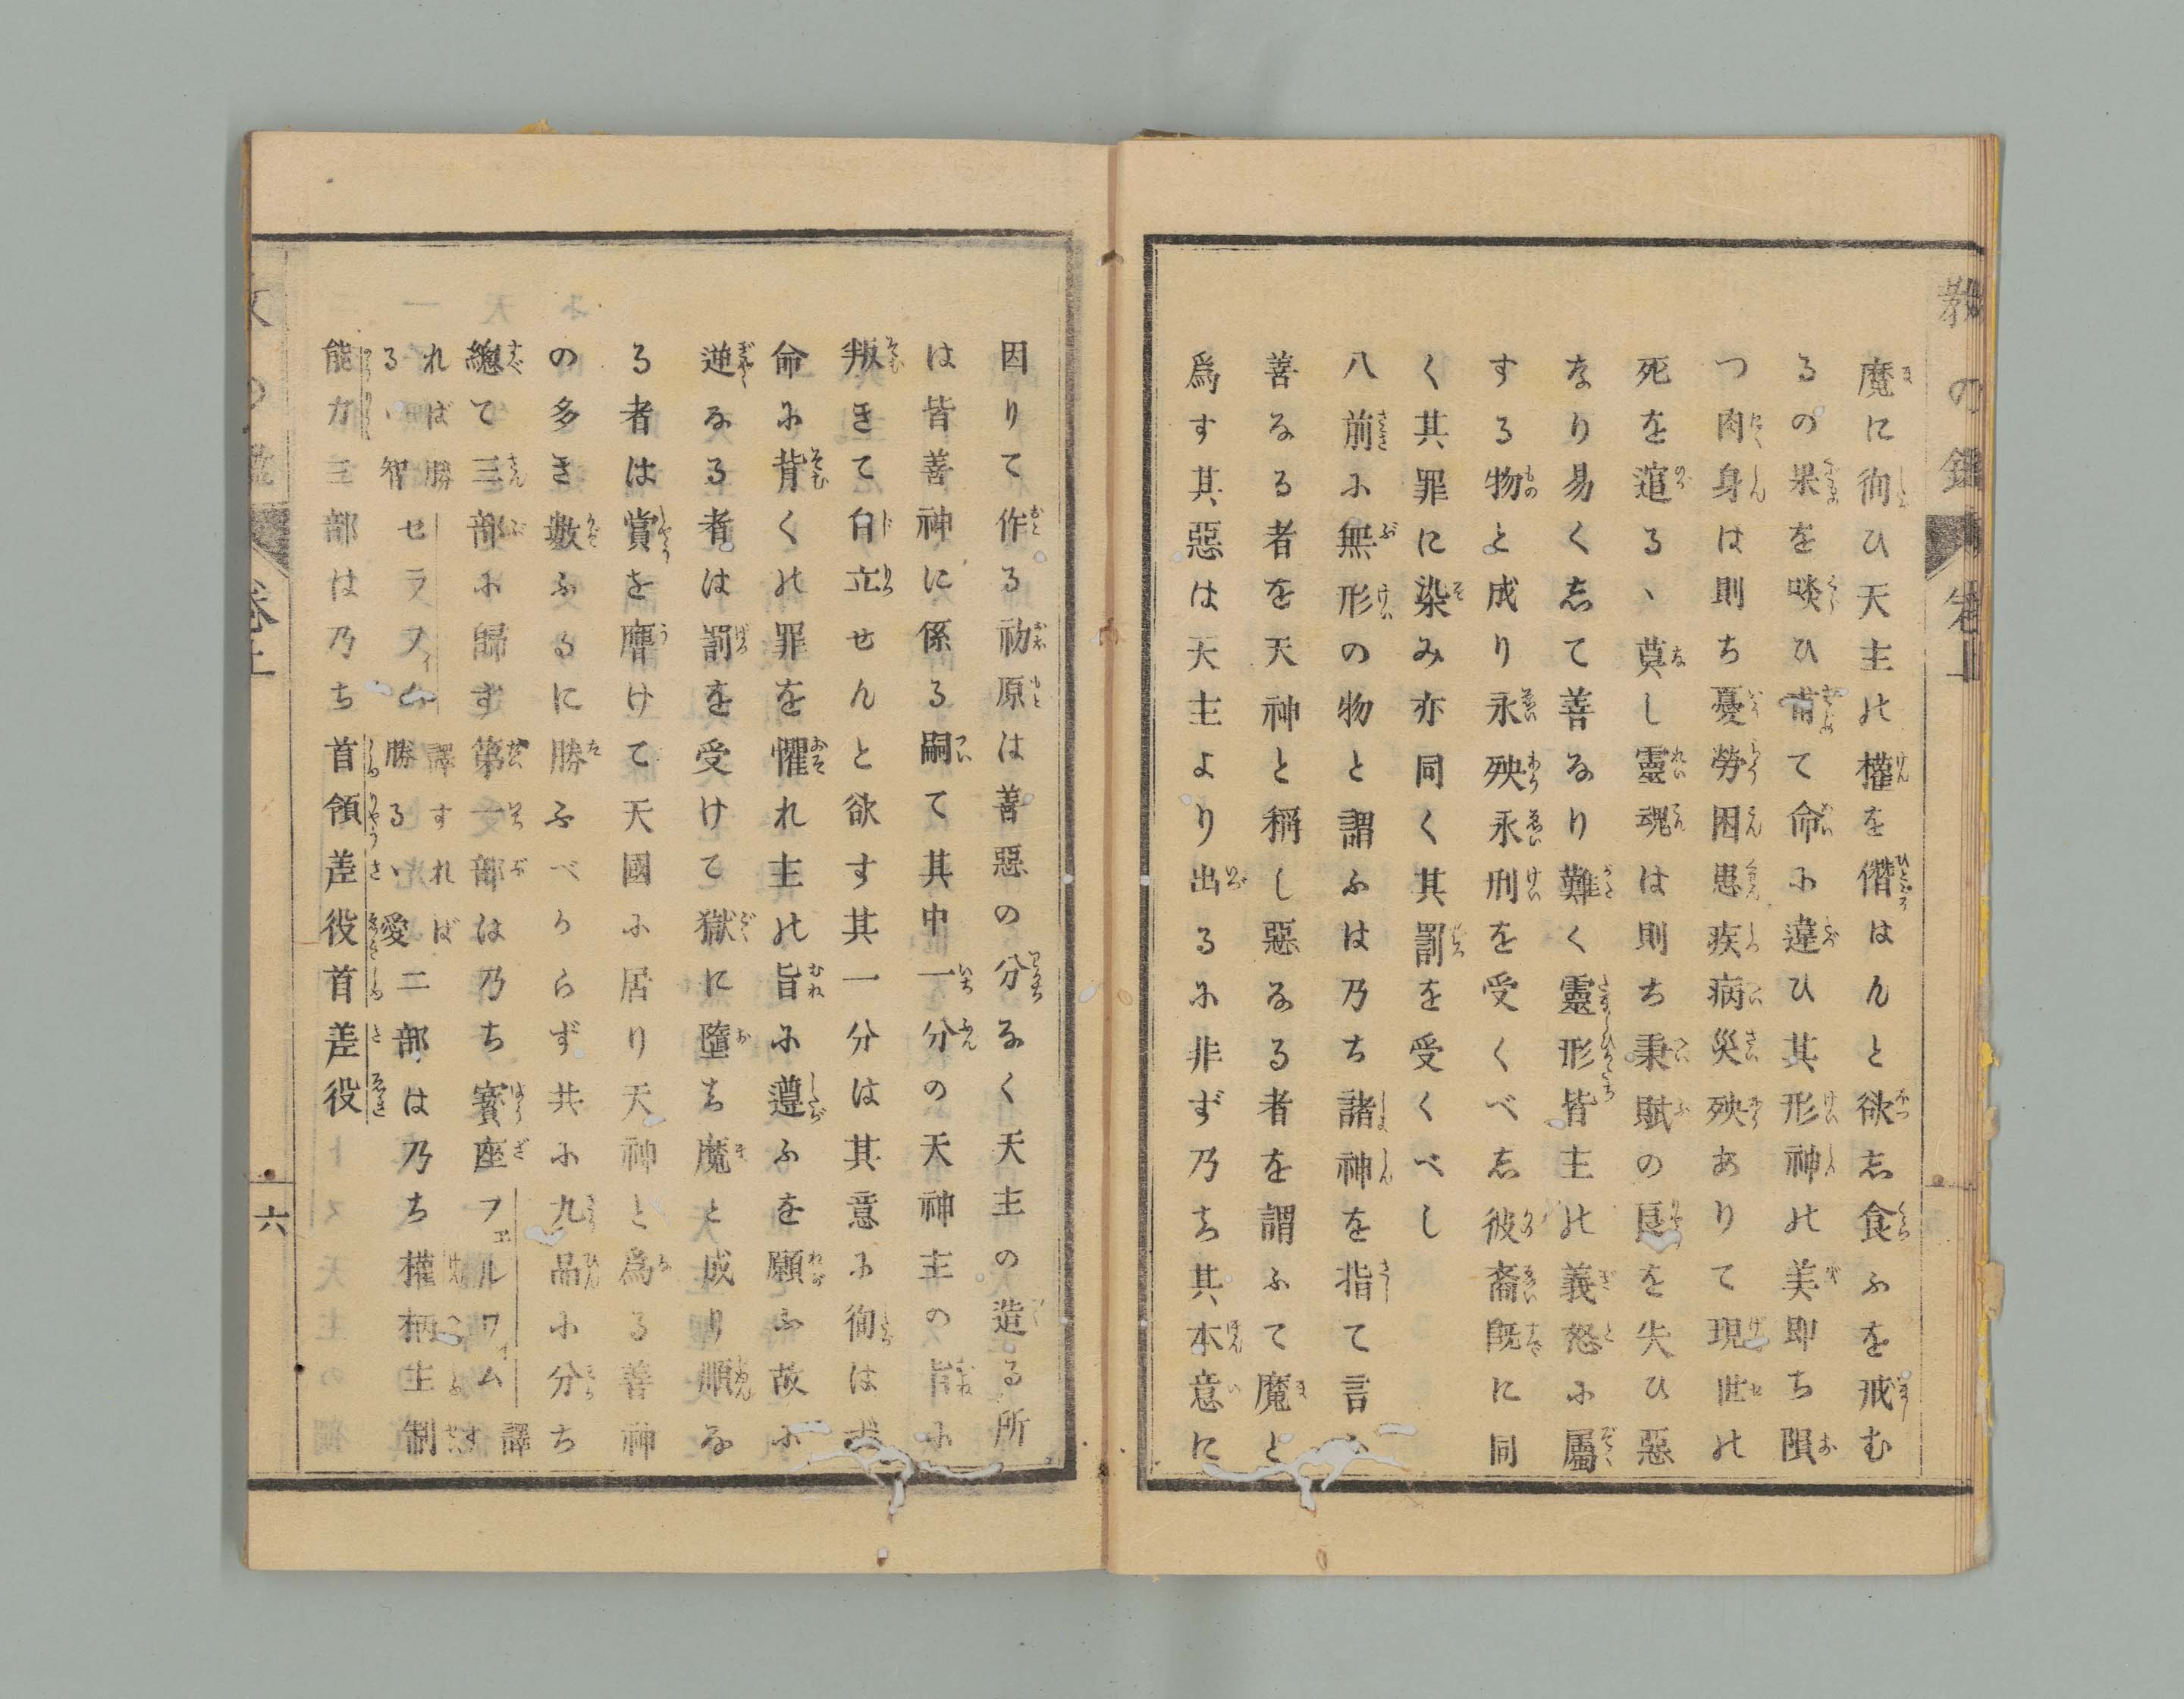 教の鑑 卷上
魔に徇ひ天主の權を僭はんと欲し食ふを戒む
るの果を啖ひ甞て命に違ひ其形神の美即ち隕
つ肉身は則ち憂勞困患疾病災殃ありて現世の
死を逭るゝ莫し靈魂は則ち秉賦の良を失ひ惡
なり易くして善なり難く靈形皆主の義怒に屬
する物と成り永殃永刑を受くべし彼裔既に同
く其罪に染み亦同く其罰を受くべし
八前に無形の物と謂ふは乃ち諸神を指て言
善なる者を天神と稱し惡なる者を謂ふて魔と
爲す其惡は天主より出るに非ず乃ち其本意に
因りて作る初原は善惡の分なく天主の造る所
は皆善神に係る嗣て其中一分の天神主の旨に
叛きて自立せんと欲す其一分は其意に徇は
命に背くの罪を懼れ主の旨に遵ふを願ふ故に
逆なる者は罰を受けて獄に墮ち魔と成り順な
る者は賞を膺けて天國に居り天神と爲る善神
の多き數ふるに勝ふべからず共に九品に分ち
總て三部に歸す第一部は乃ち寳座フェルワィム譯す
れば勝るゝ智セラフィム譯すれば勝るゝ愛二部は乃ち權柄主制
能力三部は乃ち首領差役首差役
卷上
六